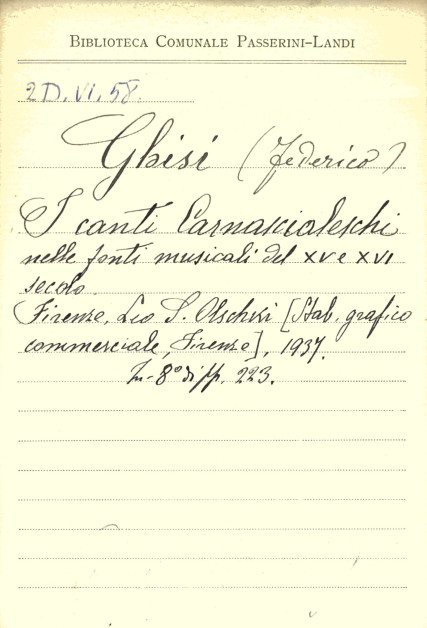 BIBLIOTECA COMUNALE PASSERINI-LANDI
2D.VI.58.
Ghisi (Federico)
I canti Carnascialeschi
nelle fonti musicali del XV e XVI
secolo.
Firenze, Leo S. Olschki [Stab. grafico
commerciale, Firenze], 1937.
In-8° di pp. 223.